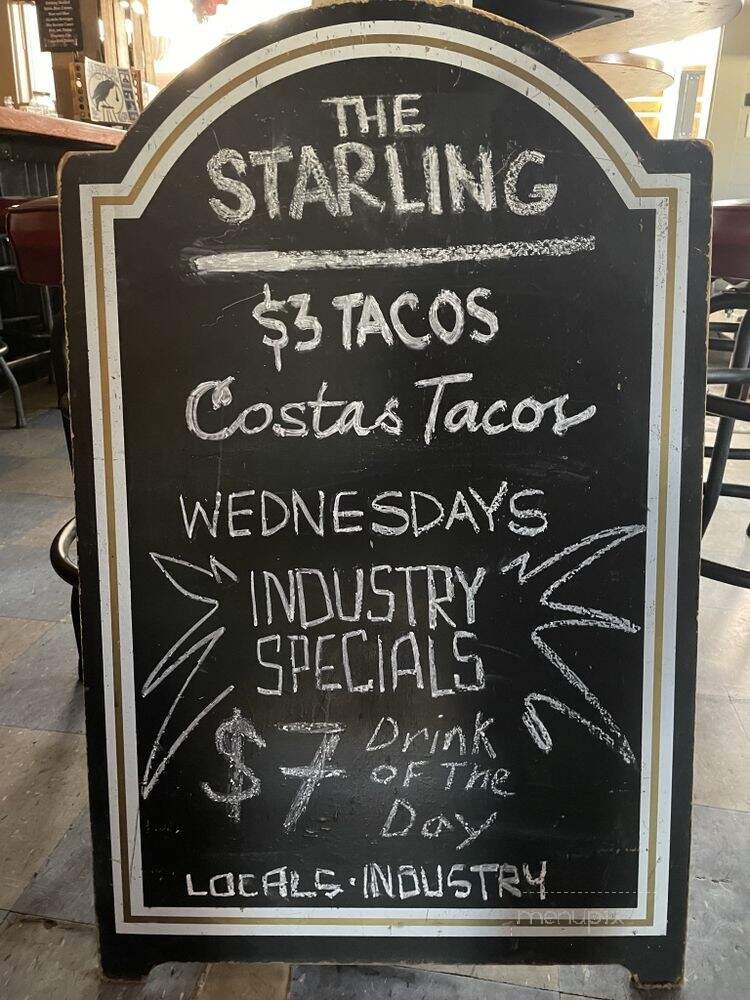 THE
STARLING
$3 TACOS
Costas Tacos
WEDNESDAYS
INDUSTRY
SPECIALS
$7 Drink
OF The
Day
LOCALS · INDUSTRY
menupix